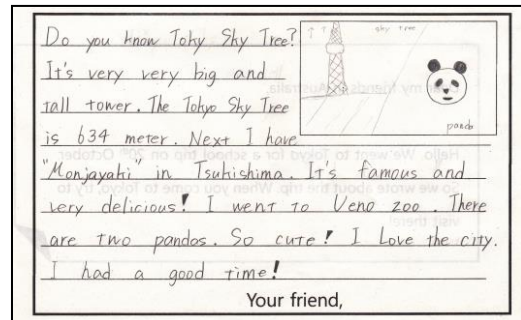 Do you know Toky Sky Tree?
It's very very big and
tall tower. The Tokyo Sky Tree
is 634 meter. Next I have
"Monjayaki in Tsukishima. It's famous and
very delicious! I went to Ueno zoo. There
are two pandas. So cute! I Love the city.
I had a good time!
Your friend,
sky tree
panda